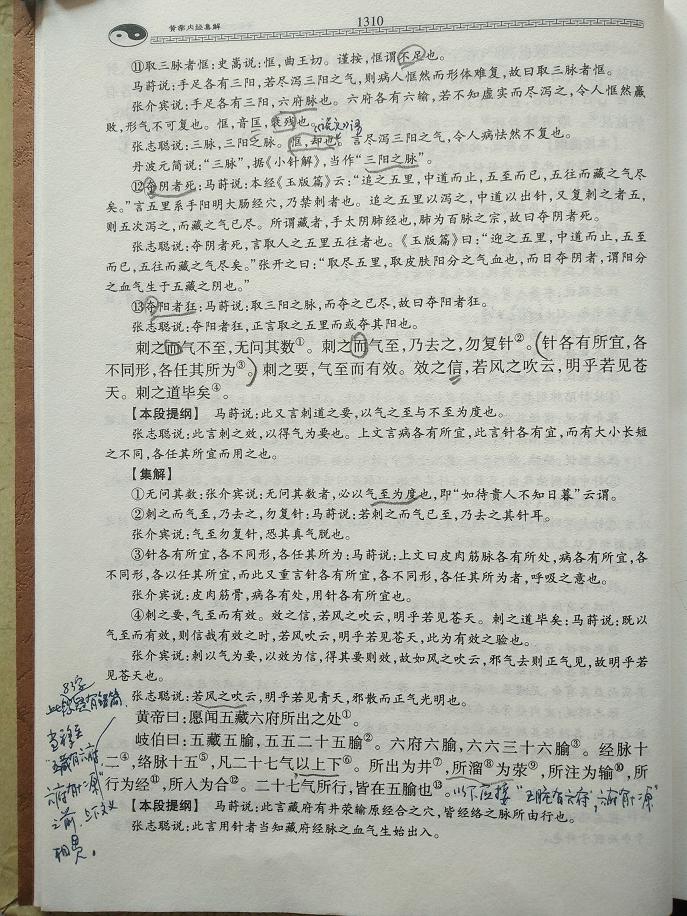 黄帝内经集解
1310
⑪取三脉者恇:史嵩说:恇,曲王切。谨按,恇谓不足也。
马莳说:手足各有三阳,若尽泻三阳之气,则病人恇然而形体难复,故曰取三脉者恇。
张介宾说:手足各有三阳,六府脉也。六府各有六输,若不知虚实而尽泻之,令人恇然羸
败,形气不可复也。恇,音匡,衰残也。
《说文》语
张志聪说:三脉,三阳之脉。恇,却也。言尽泻三阳之气,令人病怯然不复也。
丹波元简说:“三脉”,据《小针解》,当作“三阳之脉”。
⑫夺阴者死:马莳说:本经《玉版篇》云:“追之五里,中道而止,五至而已,五往而藏之气尽
矣。”言五里系手阳明大肠经穴,乃禁刺者也。追之五里以泻之,中道以出针,又复刺之者五,
则五次泻之,而藏之气已尽。所谓藏者,手太阴肺经也,肺为百脉之宗,故曰夺阴者死。
张志聪说:夺阴者死,言取人之五里五往者也。《玉版篇》曰:“迎之五里,中道而止,五至
而已,五往而藏之气尽矣。”张开之曰:“取尽五里,取皮肤阳分之气血也,而曰夺阴者,谓阳分
之血气生于五藏之阴也。”
⑬夺阳者狂:马莳说:取三阳之脉,而夺之已尽,故曰夺阳者狂。
张志聪说:夺阳者狂,正言取之五里而或夺其阳也。
刺之而气不至,无问其数①。刺之而气至,乃去之,勿复针②。针各有所宜,各
不同形,各任其所为③。刺之要,气至而有效。效之信,若风之吹云,明乎若见苍
天。刺之道毕矣④。
【本段提纲】 马莳说:此又言刺道之要,以气之至与不至为度也。
张志聪说:此言刺之效,以得气为要也。上文言病各有所宜,此言针各有宜,而有大小长短
之不同,各任其所宜而用之也。
【集解】
①无问其数:张介宾说:无问其数者,必以气至为度也,即“如待贵人不知日暮”云谓。
②刺之而气至,乃去之,勿复针:马莳说:若刺之而气已至,乃去之其针耳。
张介宾说:气至勿复针,恐其真气脱也。
③针各有所宜,各不同形,各任其所为:马莳说:上文曰皮肉筋脉各有所处,病各有所宜,各
不同形,各以任其所宜,而此又重言针各有所宜,各不同形,各任其所为者,呼吸之意也。
张介宾说:皮肉筋骨,病各有处,用针各有所宜也。
④刺之要,气至而有效。效之信,若风之吹云,明乎若见苍天。刺之道毕矣:马莳说:既以
气至而有效,则信哉有效之时,若风吹云,明乎若见苍天,此为有效之验也。
张介宾说:刺以气为要,以效为信,得其要则效,故如风之吹云,邪气去则正气见,故明乎若
见苍天也。
张志聪说:若风之吹云,明乎若见青天,邪散而正气光明也。
黄帝曰:愿闻五藏六府所出之处①。
岐伯曰:五藏五腧,五五二十五腧②。六府六腧,六六三十六腧③。经脉十
二④,络脉十五⑤,凡二十七气以上下⑥。所出为井⑦,所溜⑧为荥⑨,所注为输⑩,所
行为经⑪,所入为合⑫。二十七气所行,皆在五腧也⑬。
以下应接“五脏有六府,六府有十二原”
【本段提纲】 马莳说:此言藏府有井荥输原经合之穴,皆经络之脉所由行也。
张志聪说:此言用针者当知藏府经脉之血气生始出入。
83字
此段是有错简,
当移至
“五藏有六府
六府有十二原”
之前,上下文义
相贯。